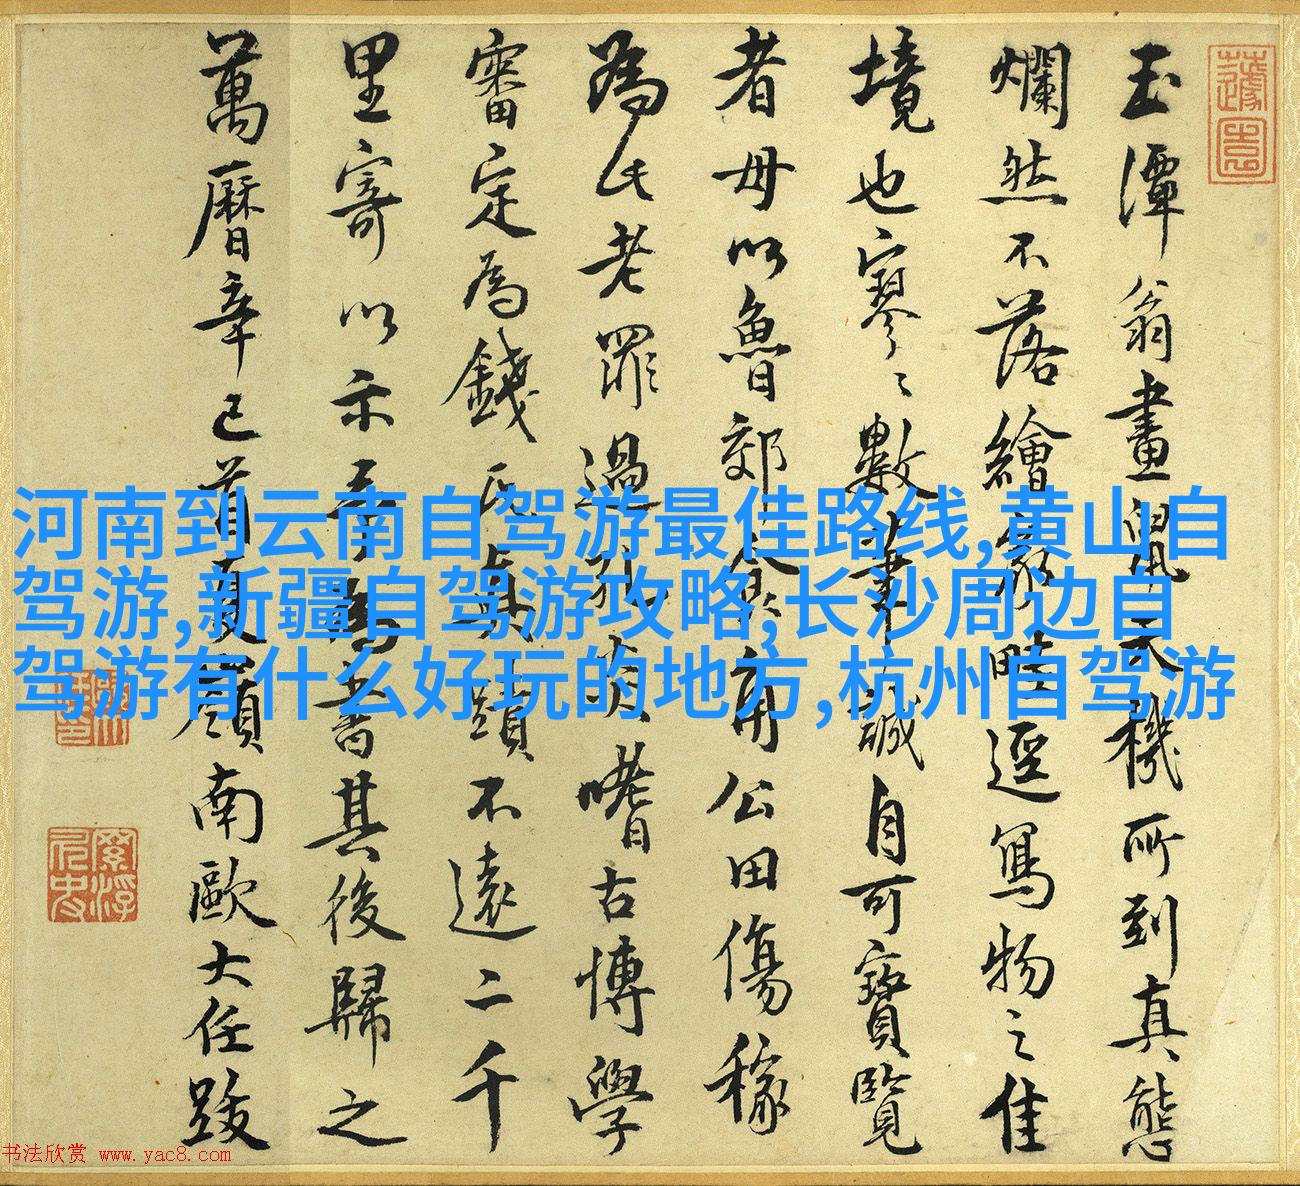 玉潭翁畫鼠天機所到真態
爛然不落繪家畦逕寫物之佳
境也寥〻數筆誠自可寶覽
者毋以魯郊食角公田傷稼
為此老罪過孔炎嗜古博學
審定為錢氏真蹟不遠二千
里寄以示為書其後歸之
萬曆辛巳首夏嶺南歐大任跋
河南到云南自驾游最佳路线,黄山自
驾游,新疆自驾游攻略,长沙周边自
驾游有什么好玩的地方,杭州自驾游
书法欣赏 www.yac8.com